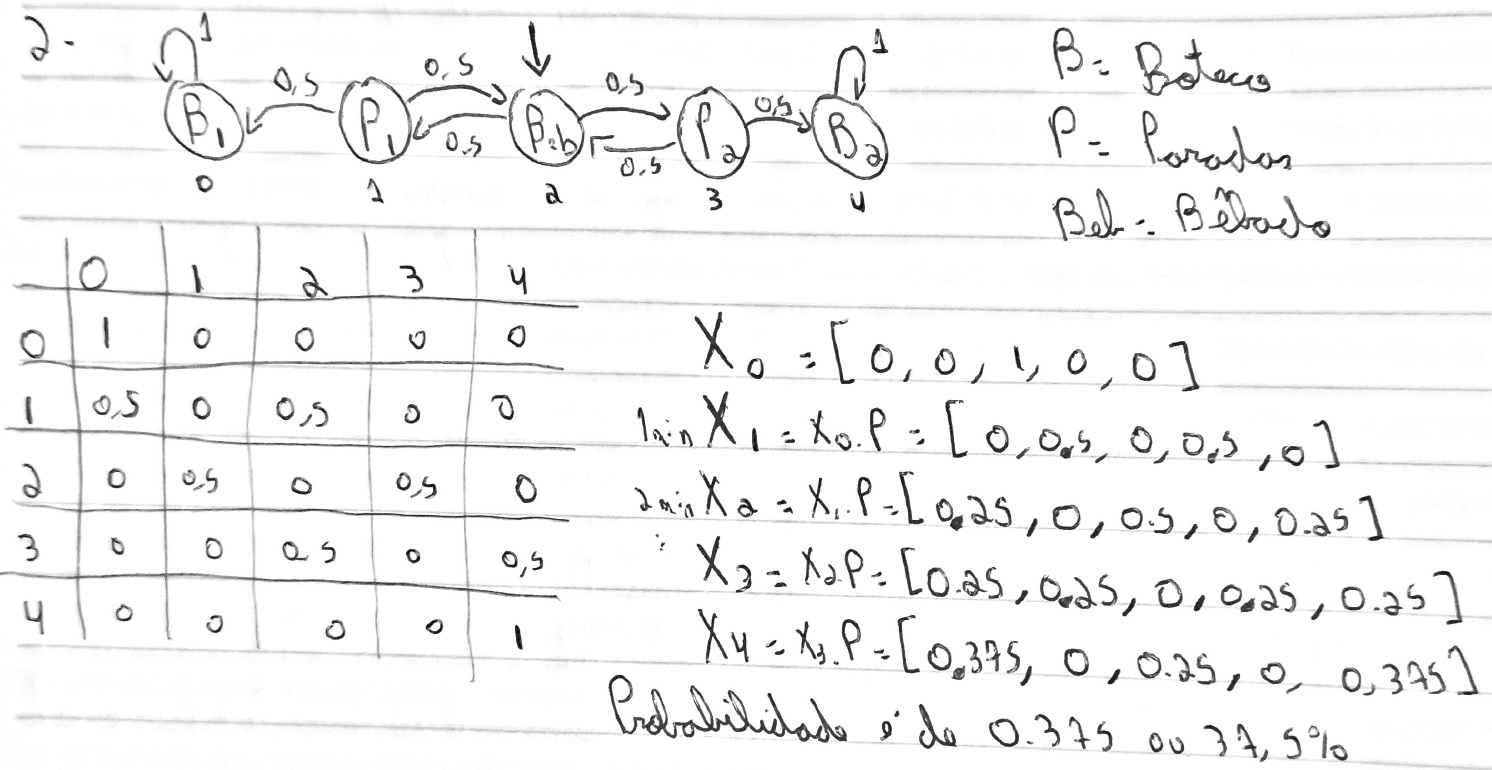 2-
1 0,5 0,5 0,5 0,5 1
B₁ P₁ Beb P₂ B₂
0,5 0,5
0 1 2 3 4
B= Boteco
P= Paradas
Beb= Bêbado
0 1 2 3 4
0 1 0 0 0 0
1 0,5 0 0,5 0 0
2 0 0,5 0 0,5 0
3 0 0 0.5 0 0,5
4 0 0 0 0 1
X₀ = [0, 0, 1, 0, 0]
1min X₁ = X₀.P = [0, 0.5, 0, 0.5, 0]
2min X₂ = X₁.P = [0.25, 0, 0.5, 0, 0.25]
: X₃ = X₂P = [0.25, 0.25, 0, 0.25, 0.25]
X₄ = X₃.P = [0,375, 0, 0.25, 0, 0,375]
Probabilidade é de 0.375 ou 37,5%